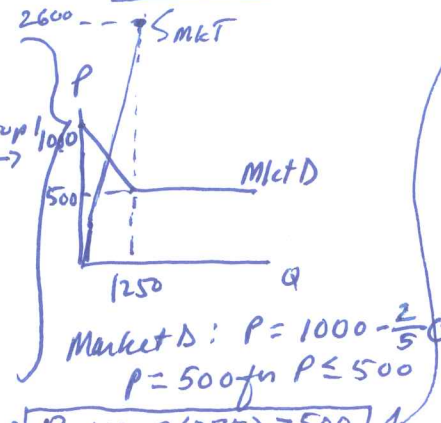 2600
SMKT
P
1000
→
500
Mkt D
1250
Q
Market D: P = 1000 - 2/5
P = 500 for P ≤ 500
= 500